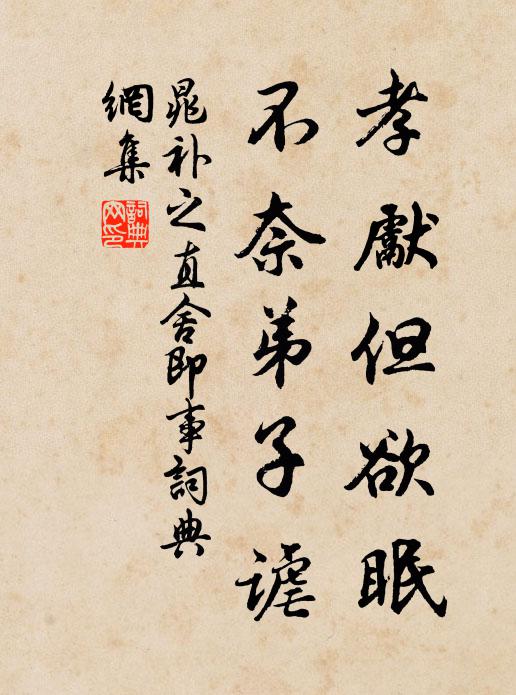 孝獻但欲眠
不奈弟子謔
晁补之直舍即事詞典
網集
詞典